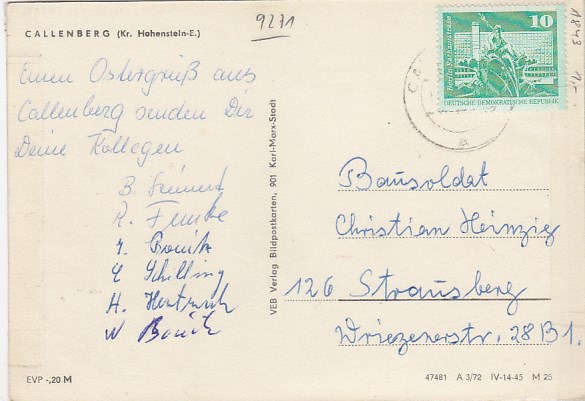 CALLENBERG (Kr. Hohenstein-E.)
9271
1843 1,-
10
DEUTSCHE DEMOKRATISCHE REPUBLIK
Einen Ostergruß aus
Callenberg senden Dir
Deine Kollegen
B.
R. Funke
E Schilling
H.
W
VEB Verlag Bildpostkarten, 901 Karl-Marx-Stadt
Bausoldat
Christian Heinzig
126 Strausberg
Wriezenerstr. 28 B1.
EVP -,20 M
47481 A 3/72 IV-14-45 M 25